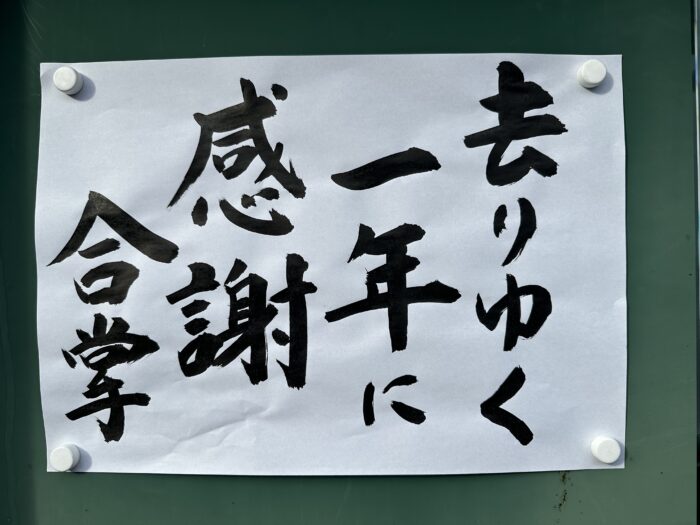 去りゆく
一年に
感謝
合掌